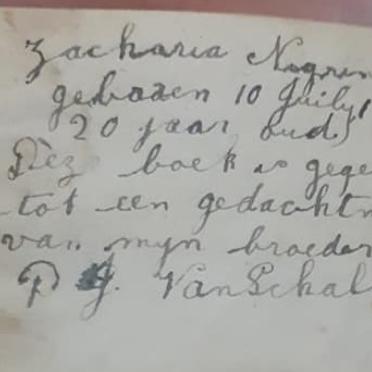 Zacharia Negrin
gebaaen 10 Juily
20 jaar oud)
Dèz boek is gege
tot een gedacht
van mijn broeder
P J. Van Schal